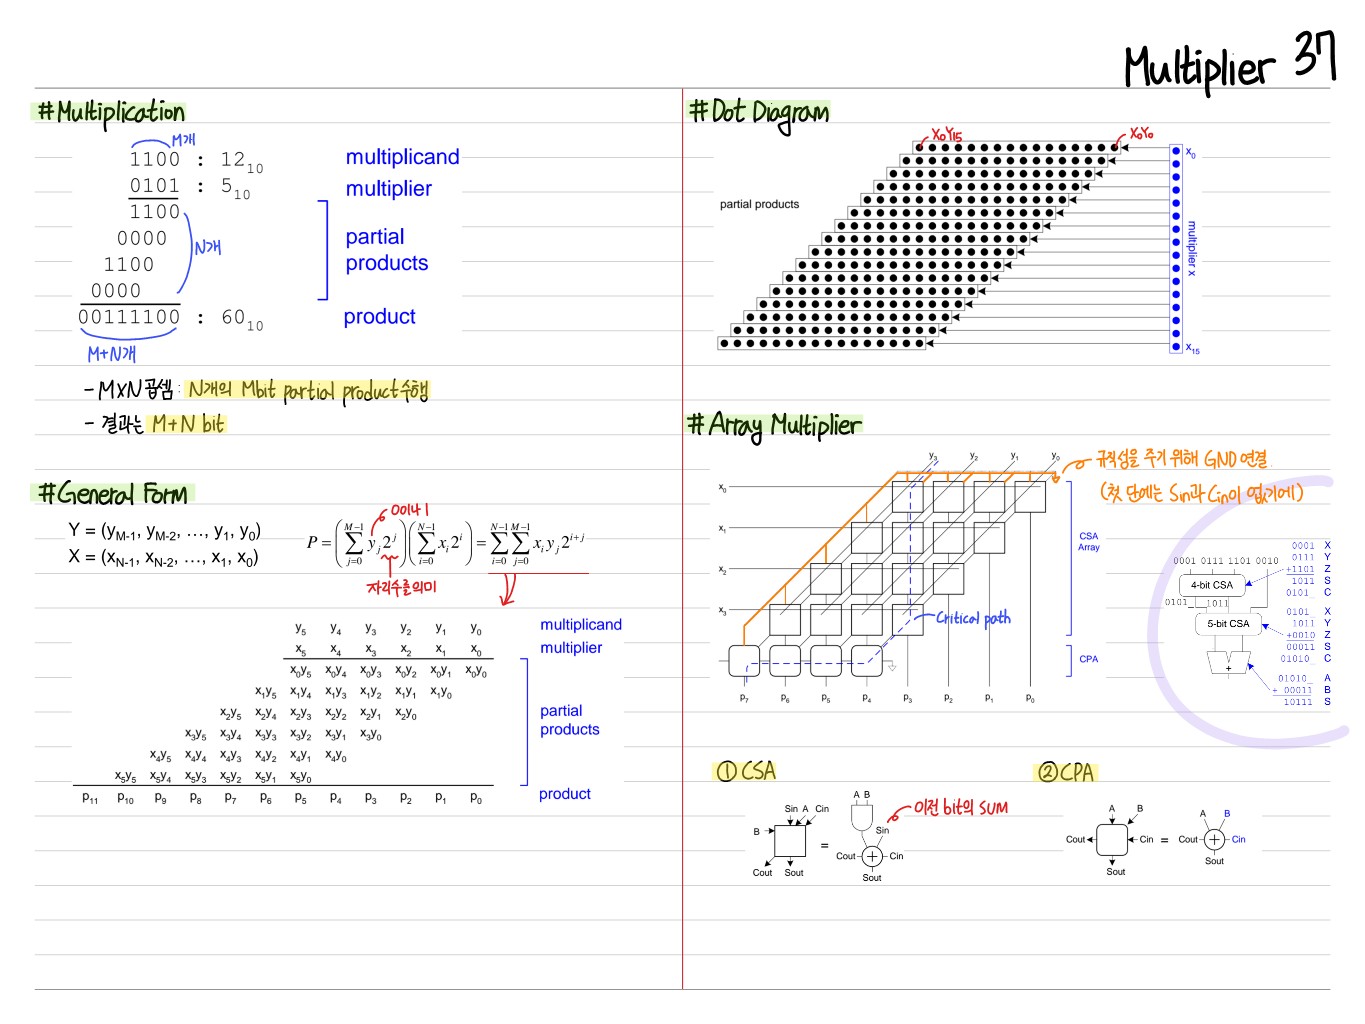 Multiplier 37
#Multiplication
M개
1100 : 12₁₀ multiplicand
0101 : 5₁₀ multiplier
1100
0000 partial
1100 products
0000
N개
00111100 : 60₁₀ product
M+N개
- M×N 곱셈 : N개의 Mbit partial product 수행
- 결과는 M+N bit
#General Form
Y = (y_{M-1}, y_{M-2}, …, y₁, y₀)
X = (x_{N-1}, x_{N-2}, …, x₁, x₀)
0이나 1
P = (∑_{j=0}^{M-1} y_j 2^j)(∑_{i=0}^{N-1} x_i 2^i) = ∑_{i=0}^{N-1} ∑_{j=0}^{M-1} x_i y_j 2^{i+j}
자리수를 의미
y₅ y₄ y₃ y₂ y₁ y₀ multiplicand
x₅ x₄ x₃ x₂ x₁ x₀ multiplier
x₀y₅ x₀y₄ x₀y₃ x₀y₂ x₀y₁ x₀y₀
x₁y₅ x₁y₄ x₁y₃ x₁y₂ x₁y₁ x₁y₀
x₂y₅ x₂y₄ x₂y₃ x₂y₂ x₂y₁ x₂y₀ partial
x₃y₅ x₃y₄ x₃y₃ x₃y₂ x₃y₁ x₃y₀ products
x₄y₅ x₄y₄ x₄y₃ x₄y₂ x₄y₁ x₄y₀
x₅y₅ x₅y₄ x₅y₃ x₅y₂ x₅y₁ x₅y₀
p₁₁ p₁₀ p₉ p₈ p₇ p₆ p₅ p₄ p₃ p₂ p₁ p₀ product
#Dot Diagram
X₀Y₁₅ X₀Y₀
x₀
partial products
multiplier x
x₁₅
#Array Multiplier
y₃ y₂ y₁ y₀
규칙성을 주기 위해 GND 연결
(첫 단에는 Sin과 Cin이 없기에)
x₀
x₁
x₂
x₃
CSA
Array
Critical path
CPA
p₇ p₆ p₅ p₄ p₃ p₂ p₁ p₀
0001 0111 1101 0010
4-bit CSA
0101_ 1011
5-bit CSA
+
0001 X
0111 Y
+1101 Z
1011 S
0101_ C
0101_ X
1011 Y
+0010 Z
00011 S
01010_ C
01010_ A
+ 00011 B
10111 S
① CSA
Sin A Cin
B
Cout Sout
=
A B
Sin
이전 bit의 SUM
Cout + Cin
Sout
② CPA
A B
Cout Cin
Sout
=
A B
Cout + Cin
Sout